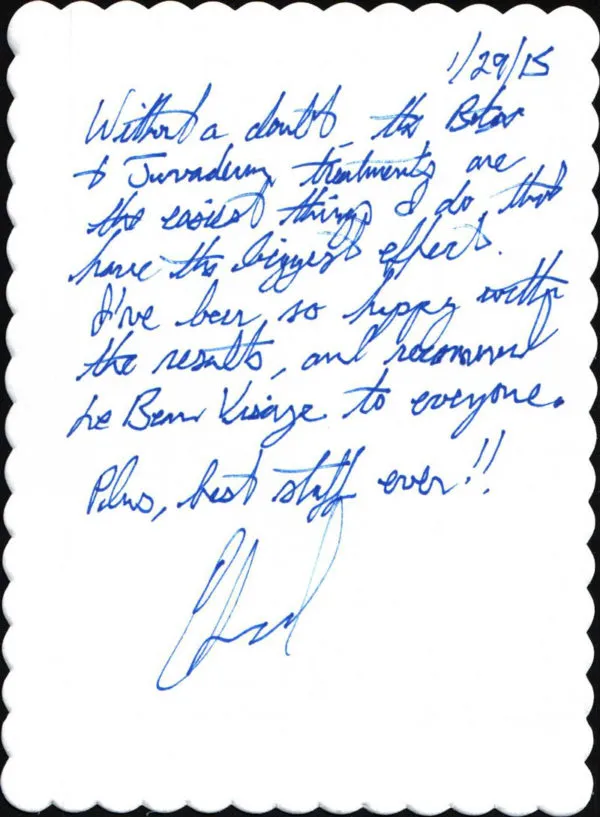 1/29/15
Without a doubt, the Botox
& Juvaderm treatments are
the easiest things I do that
have the biggest effect.
I've been so happy with
the results, and recommend
Le Beau Visage to everyone.
Plus, best staff ever!!
Chad